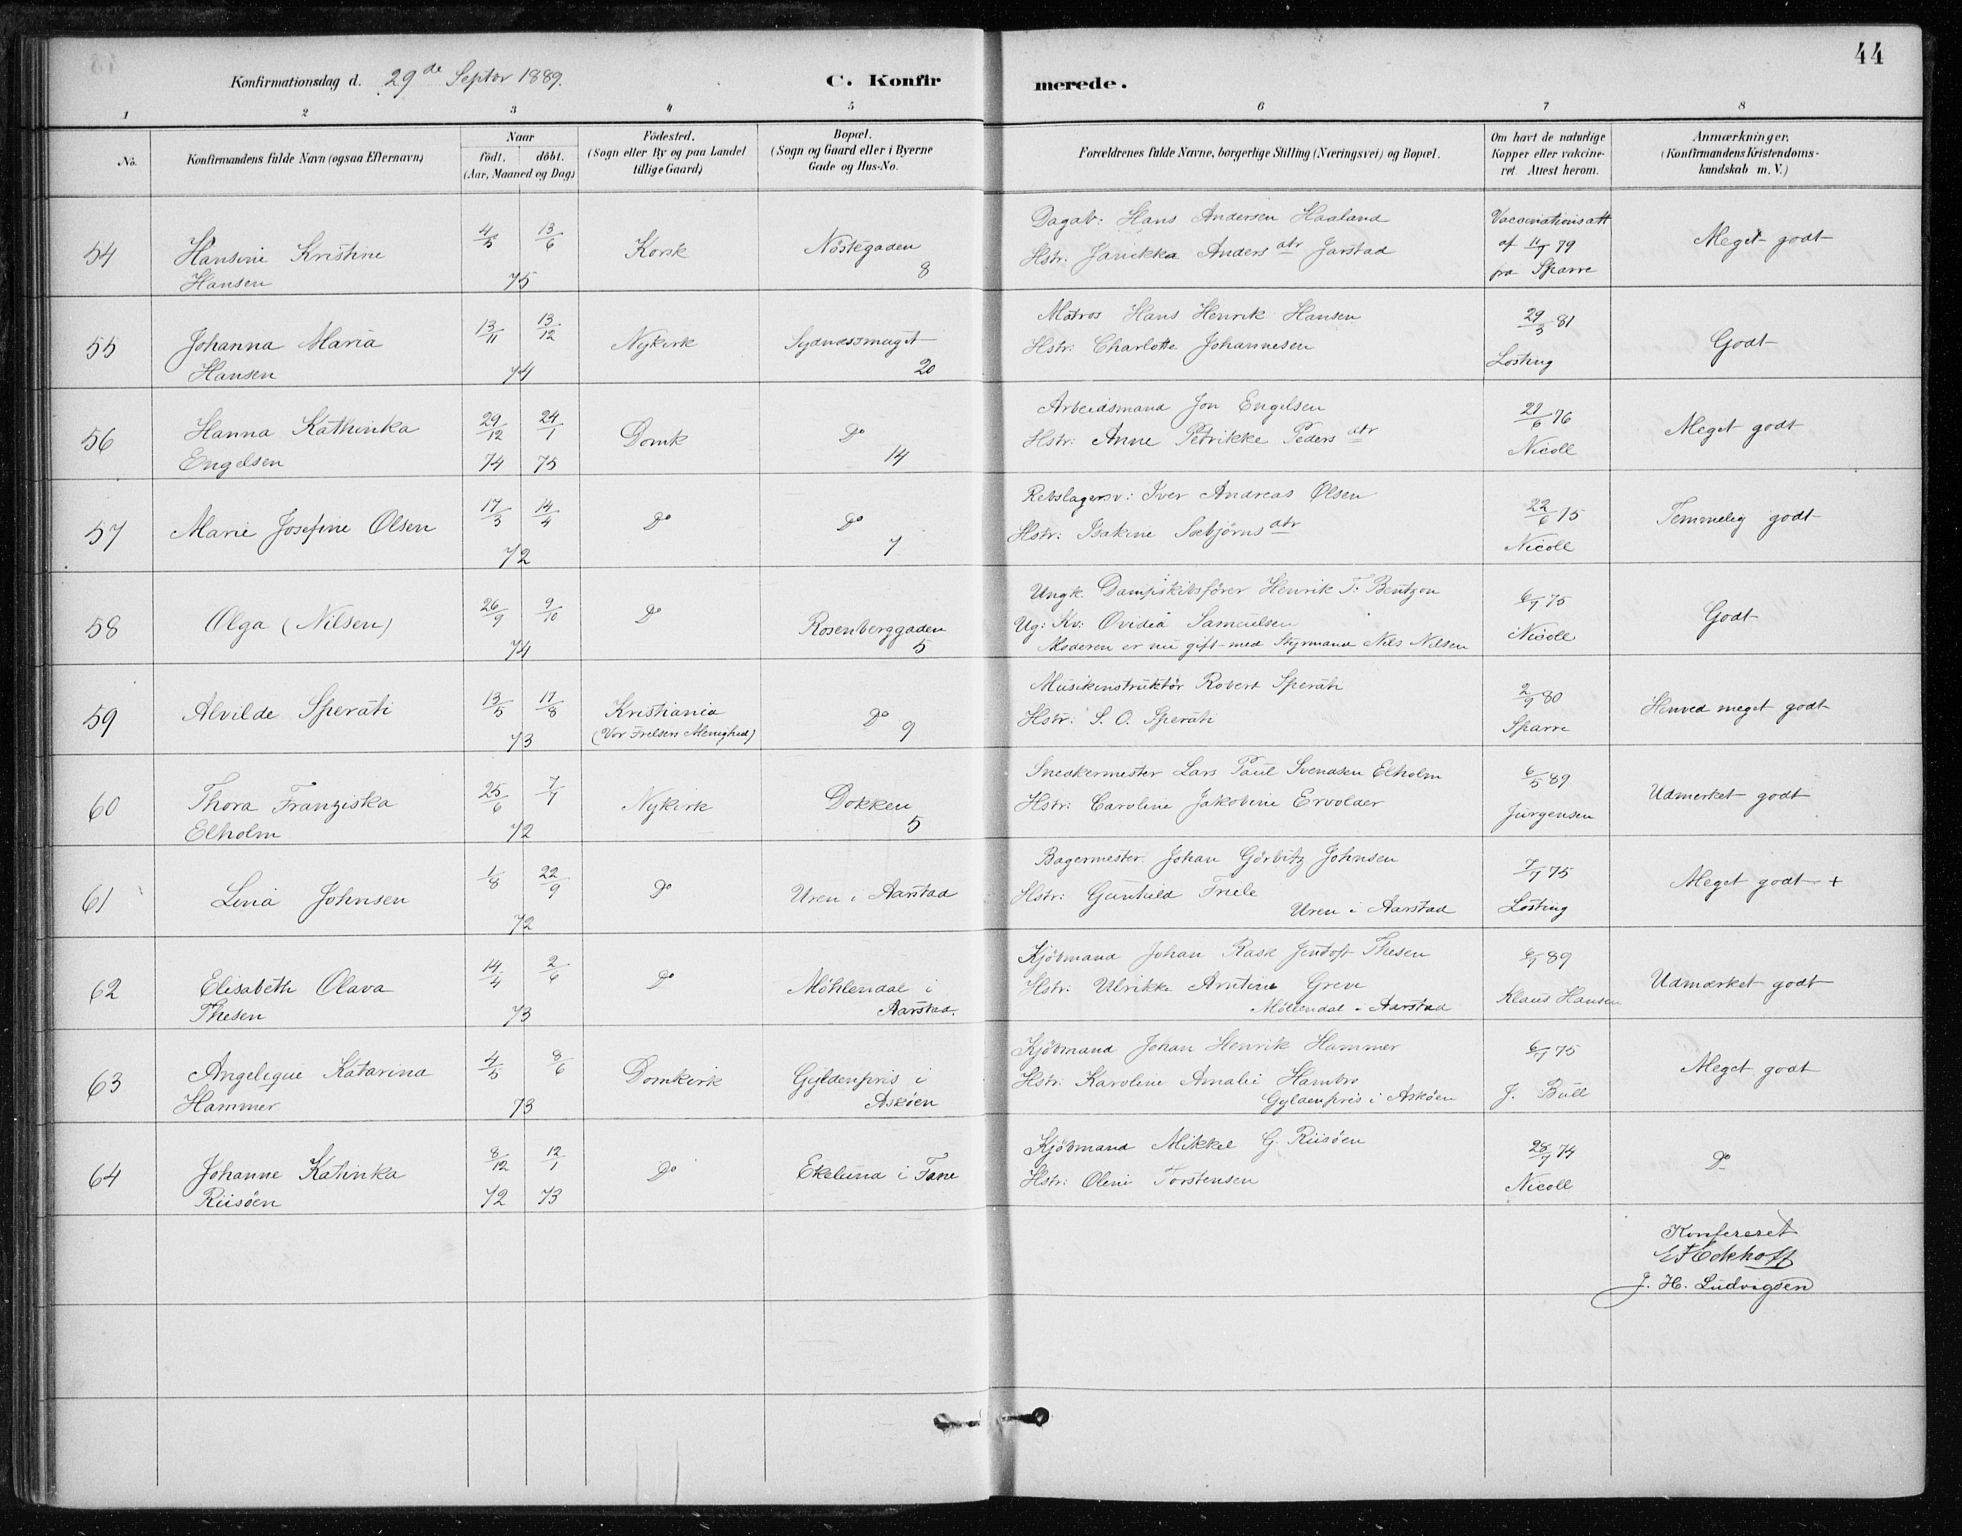 44
Konfirmationsdag d. 29de Septbr 1889.
C. Konfir merede.
1 2 3 4 5 6 7 8
No.
Konfirmandens fulde Navn (ogsaa Efternavn)
Naar
födt. döbt.
(Aar, Maaned og Dag)
Födested.
(Sogn eller By og paa Landet
tillige Gaard)
Bopæl.
(Sogn og Gaard eller i Byerne
Gade og Hus-No.
Forældrenes fulde Navne, borgerlige Stilling (Næringsvei) og Bopæl.
Om havt de naturlige
Kopper eller vakcine-
ret Attest herom.
Anmærkninger.
(Konfirmandens Kristendoms-
kundskab m. V.)
54
Hansine Kristine
Hansen
4/5 13/6
75
Korsk
Nöstegaden
8
Dagab: Hans Andersen Haaland
Hstr: Janikka Andersdtr Jarstad
Vaccinationsatt
af 11/7 79
fra Sparre
Meget godt
55
Johanna Maria
Hansen
13/11 13/12
74
Nykirk
Sydnæssmuget
20
Matros Hans Henrik Hansen
Hstr: Charlotte Johannesen
29/3 81
Losting
Godt
56
Hanna Kathinka
Engelsen
29/12 24/1
74 75
Domk
Do
14
Arbeidsmand Jon Engelsen
Hstr: Anne Petrikke Pedersdtr
21/6 76
Nicoll
Meget godt
57
Marie Josefine Olsen
17/3 14/4
72
Do
Do
7
Rebslagersv: Iver Andreas Olsen
Hstr: Isakine Sæbjørnsdtr
22/6 75
Nicoll
Temmelig godt
58
Olga (Nilsen)
26/9 9/10
74
Do
Rosenberggaden
5
Ungk. Dampskibsfører Henrik T. Bentzon
Ug: Kv: Ovidia Samuelsen
Moderen er nu gift med Styrmand Nils Nilsen
6/7 75
Nicoll
Godt
59
Alvilde Sperati
13/5 17/8
73
Kristiania
(Vor Frelsers Menighed)
Do
9
Musikinstruktör Robert Sperati
Hstr: S. O. Sperati
2/9 80
Sparre
Henved meget godt
60
Thora Franziska
Elholm
25/6 7/7
72
Nykirk
Dokken
5
Snedkermester Lars Paul Svendsen Elholm
Hstr: Caroline Jakobine Ervolder
6/5 89
Jürgensen
Udmerket godt
61
Lina Johnsen
1/8 22/9
72
Do
Uren i Aarstad
Bagermester Johan Görbitz Johnsen
Hstr: Gunhild Friele
Uren i Aarstad
7/7 75
Losting
Meget godt +
62
Elisabeth Olava
Thesen
14/4 2/6
73
Do
Møhlendal i
Aarstad.
Kjöbmand Johan Rask Jentoft Thesen
Hstr: Ulrikke Arntine Greve
Möllendal i Aarstad
6/7 89
Klaus Hansen
Udmærket godt
63
Angelique Katarina
Hammer
4/5 8/6
73
Domkirk
Gyldenpris i
Askøen
Kjöbmand Johan Henrik Hammer
Hstr: Karoline Amalie Hambro
Gyldenpris i Askøen
6/7 75
J. Bull
Meget godt
64
Johanne Katinka
Riisöen
8/12 12/1
72 73
Do
Ekelund i Fane
Kjöbmand Mikkel G. Riisöen
Hstr: Oline Torstensen
28/7 74
Nicoll
Do
Konfereret
E F Eckhoff
J. H. Ludvigsen